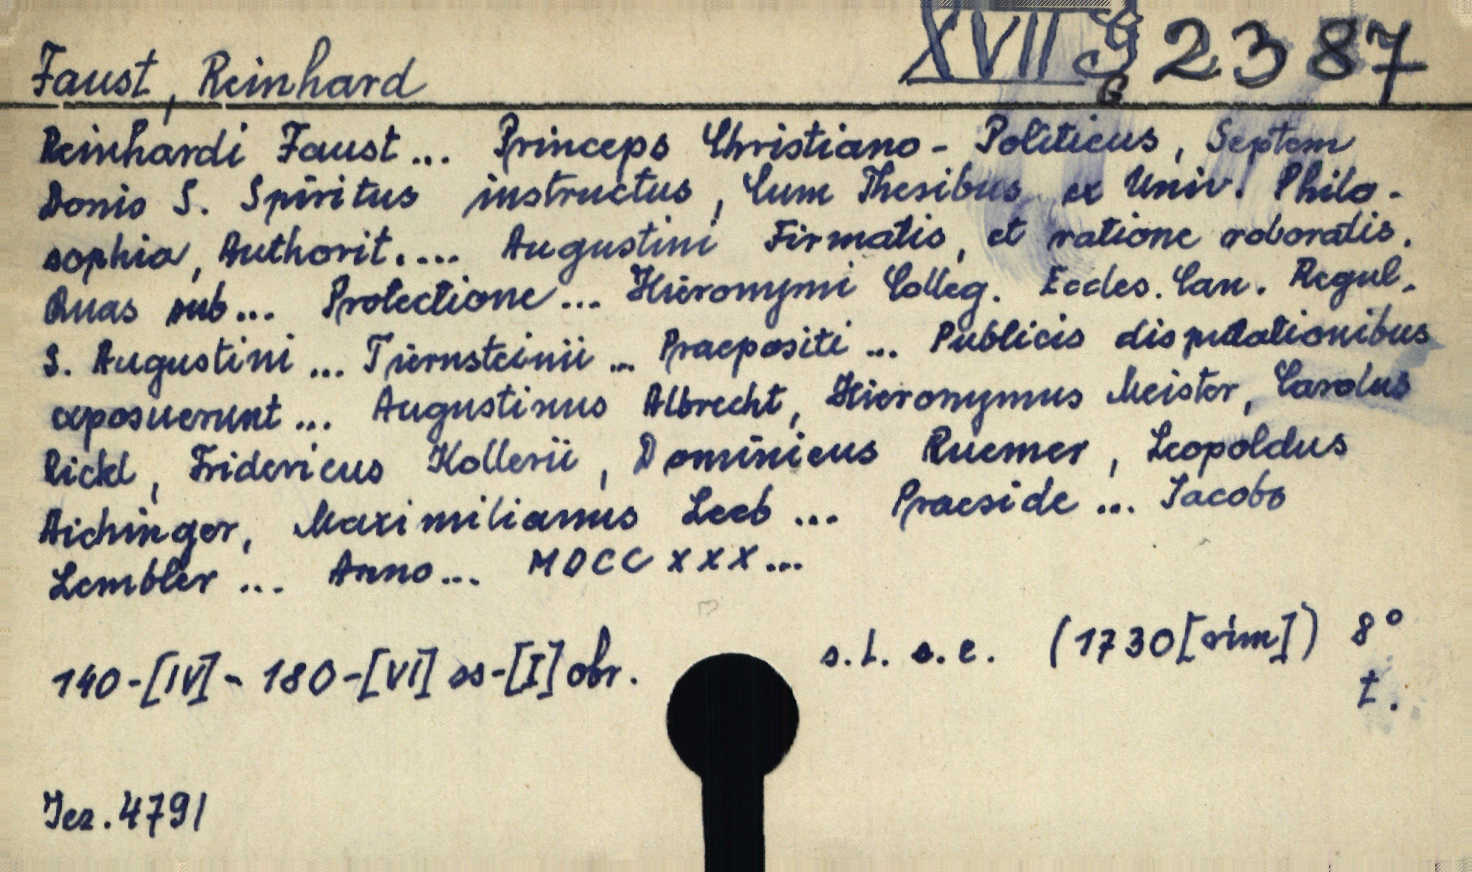 Faust, Reinhard
XVII G 2387
Reinhardi Faust ... Princeps Christiano - Politicus, Septem
Donis S. Spiritus instructus, Cum Thesibus ex Univ. Philo-
sophia, Authorit. ... Augustini Firmatis, et ratione roboratis.
Quas sub ... Protectione ... Hieronymi Colleg. Eccles. Can. Regul.
S. Augustini ... Tiernsteinii ... Praepositi ... Publicis disputationibus
exposuerunt ... Augustinus Albrecht, Hieronymus Meister, Carolus
Rickl, Fridericus Kollerii, Dominicus Ruemer, Leopoldus
Aichinger, Maximilianus Leeb ... Praeside ... Jacobo
Lembler ... Anno ... MDCCXXX ...
140-[IV]-180-[VI] ss-[I] obr. s. l. a. e. (1730[rim]) 8°
t.
Jez. 4791